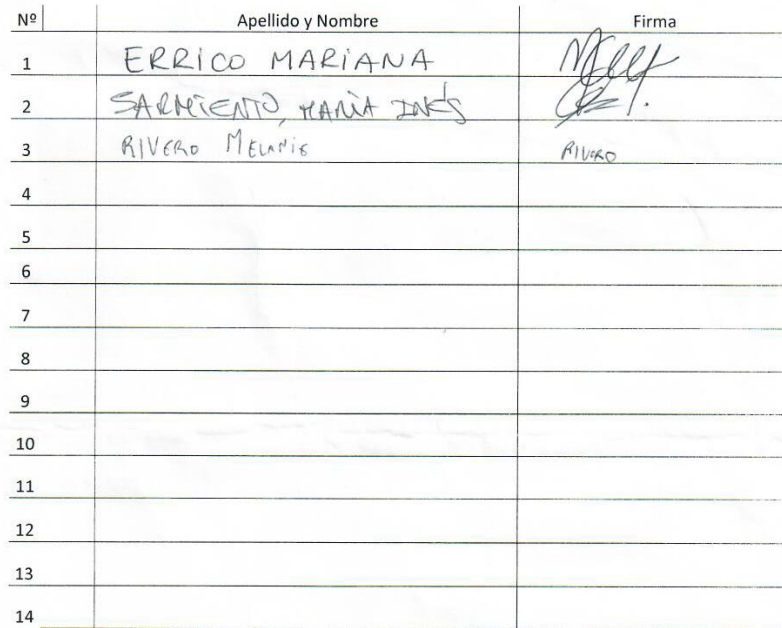 Nº Apellido y Nombre Firma
1 ERRICO MARIANA
2 SARMIENTO, MARÍA INÉS
3 RIVERO MELANIE RIVERO
4
5
6
7
8
9
10
11
12
13
14